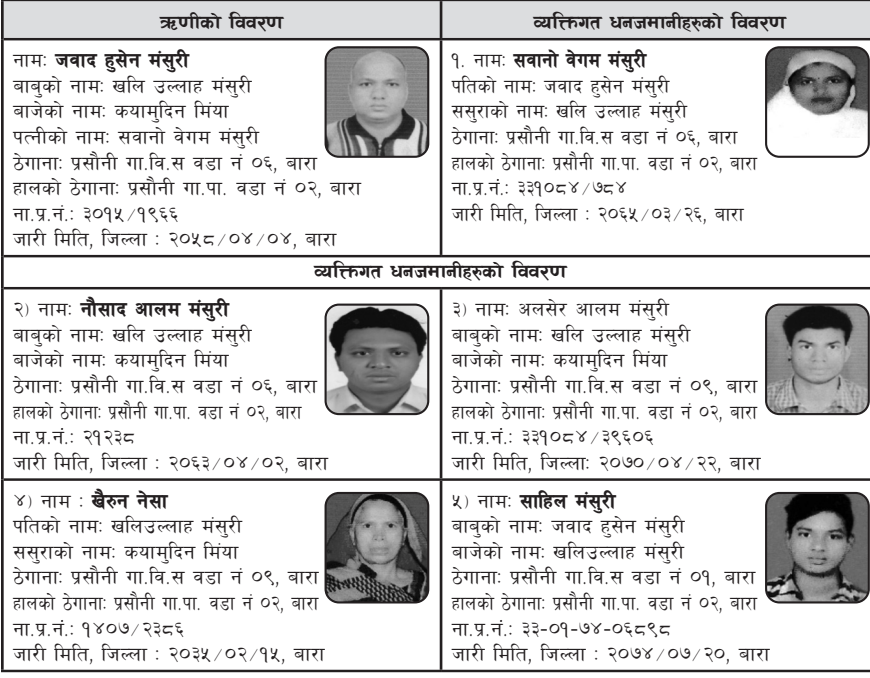 ऋणीको विवरण
नामः जवाद हुसेन मंसुरी
बाबुको नामः खलि उल्लाह मंसुरी
बाजेको नामः कयामुदिन मिंया
पत्नीको नामः सवानो वेगम मंसुरी
ठेगानाः प्रसौनी गा.वि.स वडा नं ०६, बारा
हालको ठेगानाः प्रसौनी गा.पा. वडा नं ०२, बारा
ना.प्र.नं.: ३०१५/१९६६
जारी मिति, जिल्ला : २०५८/०४/०४, बारा
व्यक्तिगत धनजमानीहरुको विवरण
१. नामः सवानो वेगम मंसुरी
पतिको नामः जवाद हुसेन मंसुरी
ससुराको नामः खलि उल्लाह मंसुरी
ठेगानाः प्रसौनी गा.वि.स वडा नं ०६, बारा
हालको ठेगानाः प्रसौनी गा.पा. वडा नं ०२, बारा
ना.प्र.नं.: ३३१०८४/७८४
जारी मिति, जिल्ला : २०६५/०३/२६, बारा
व्यक्तिगत धनजमानीहरुको विवरण
२) नामः नौसाद आलम मंसुरी
बाबुको नामः खलि उल्लाह मंसुरी
बाजेको नामः कयामुदिन मिंया
ठेगानाः प्रसौनी गा.वि.स वडा नं ०६, बारा
हालको ठेगानाः प्रसौनी गा.पा. वडा नं ०२, बारा
ना.प्र.नं.: २१२३८
जारी मिति, जिल्ला : २०६३/०४/०२, बारा
३) नामः अलसेर आलम मंसुरी
बाबुको नामः खलि उल्लाह मंसुरी
बाजेको नामः कयामुदिन मिंया
ठेगानाः प्रसौनी गा.वि.स वडा नं ०९, बारा
हालको ठेगानाः प्रसौनी गा.पा. वडा नं ०२, बारा
ना.प्र.नं.: ३३१०८४/३९६०६
जारी मिति, जिल्लाः २०७०/०४/२२, बारा
४) नाम : खैरुन नेसा
पतिको नामः खलिउल्लाह मंसुरी
ससुराको नामः कयामुदिन मिंया
ठेगानाः प्रसौनी गा.वि.स वडा नं ०९, बारा
हालको ठेगानाः प्रसौनी गा.पा. वडा नं ०२, बारा
ना.प्र.नं.: १४०७/२३८६
जारी मिति, जिल्ला : २०३५/०२/१५, बारा
५) नामः साहिल मंसुरी
बाबुको नामः जवाद हुसेन मंसुरी
बाजेको नामः खलिउल्लाह मंसुरी
ठेगानाः प्रसौनी गा.वि.स वडा नं ०१, बारा
हालको ठेगानाः प्रसौनी गा.पा. वडा नं ०२, बारा
ना.प्र.नं.: ३३-०१-७४-०६८९८
जारी मिति, जिल्ला : २०७४/०७/२०, बारा